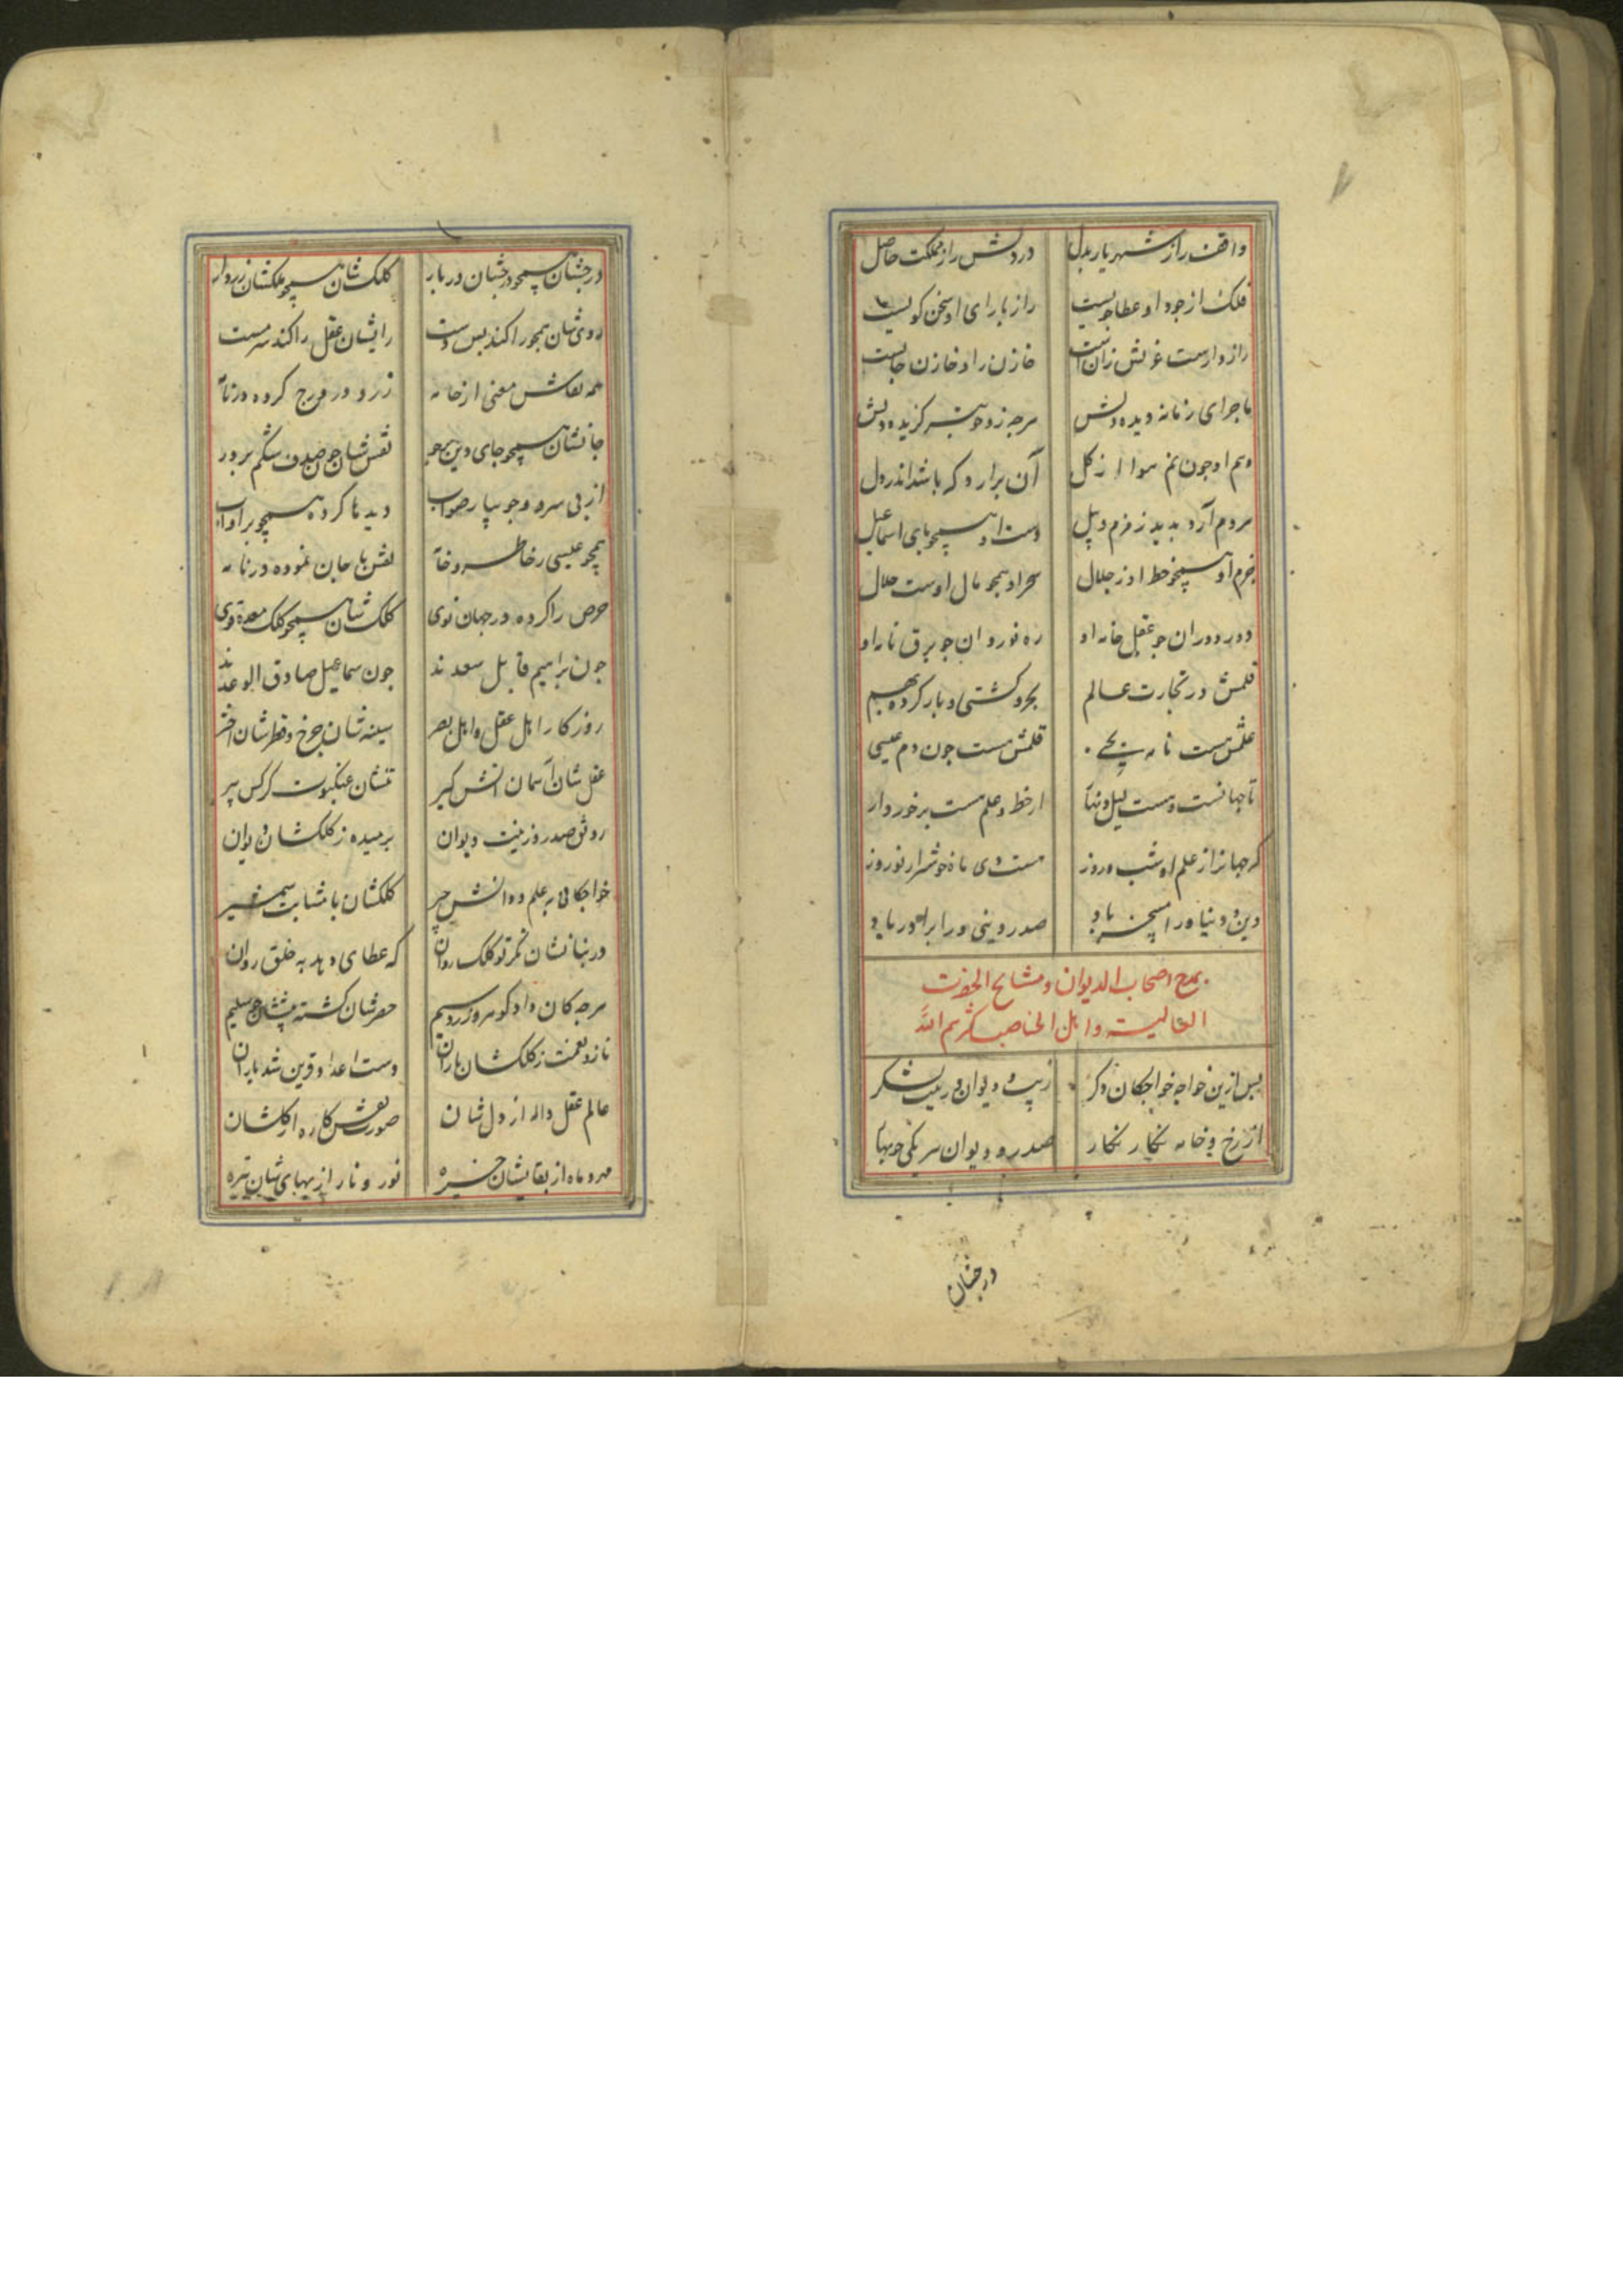 واقف راز شهریار بدل دردلش راز مملکت حاصل
فلک از جود او عطا جویست راز با رای او سخن کویست
رازدارست غزنش زان است خازن راد خازن جانست
ماجرای زمانه دیده دلش هرچه زو خوبتر کزیده دلش
وهم او چون نم هوا از کل آن برارد که باشد اندر دل
مردم آرد بدید زمزم و پیل دست او همچو پای اسماعیل
خرم او همچو خط او ز جلال سحر او همچو مال اوست حلال
دور دوران جو عقل خانه او ره نوردان جو برق نامه او
قلمش در تجارت عالم بحر و کشتی و بار کرده بهم
علمش هست نامه یحیی قلمش هست جون دم عیسی
تا جهانست و هست لیل و نهار از خط و علم هست برخوردار
که جهانرا ز علم او شب و روز هست دی ماه خوشتر از نوروز
دین و دنیا ورا مسخر باد صدر دینی ورا برادر باد
بمدح اصحاب الدیوان و مشایخ الحضرت
العالیه و اهل المناصب کثرهم الله
بس ازین خواجه خواجکان دکر زیب دیوان و زینت لشکر
از رخ و خامه نکار نکار صدر و دیوان هر یکی جو بهار
درخشان
درخشان همچو درخشان دربار کلک شان همچو ملکشان زردار
روی شان بهجو را کند بس دست رایشان عقل را کند سرمست
همه نقاش معنی از خامه زر و در درج کرده در نامه
جانشان همچو جای دین همه جو نقش شان جون صدف شکم بر در
از بی سرو وجویبار صواب دیدها کرده همچو بر او آب
همچو عیسی ز خاطر و خامه نقش با جان نموده در نامه
حرص را کرده در جهان نوی کلک شان همچو کلک معده قوی
جون براهیم قابل سعدند جون سماعیل صادق الوعدند
روز کار اهل عقل و اهل بصر سینه شان جرخ و قطرشان اختر
عقل شان آسمان دانش کیر تنشان عنکبوت کرکس پیر
رونق صدر و زینت دیوان برمیده ز کلکشان دیوان
خواجکانی به علم و دانش چیر کلکشان با مثابت شمشیر
در بنانشان نکر تو کلک روان که عطا می دهد به خلق روان
هرچه کان داد کوهر و زر و سیم حضرشان کشته پیششان تسلیم
ناز و نعمت ز کلکشان باران دست اعدا و قرین شد باران
عالم عقل واله از دل شان صورت نقش کاره از کلشان
مه و ماه از بقایشان خیره نور و نار از بهای شان تیره